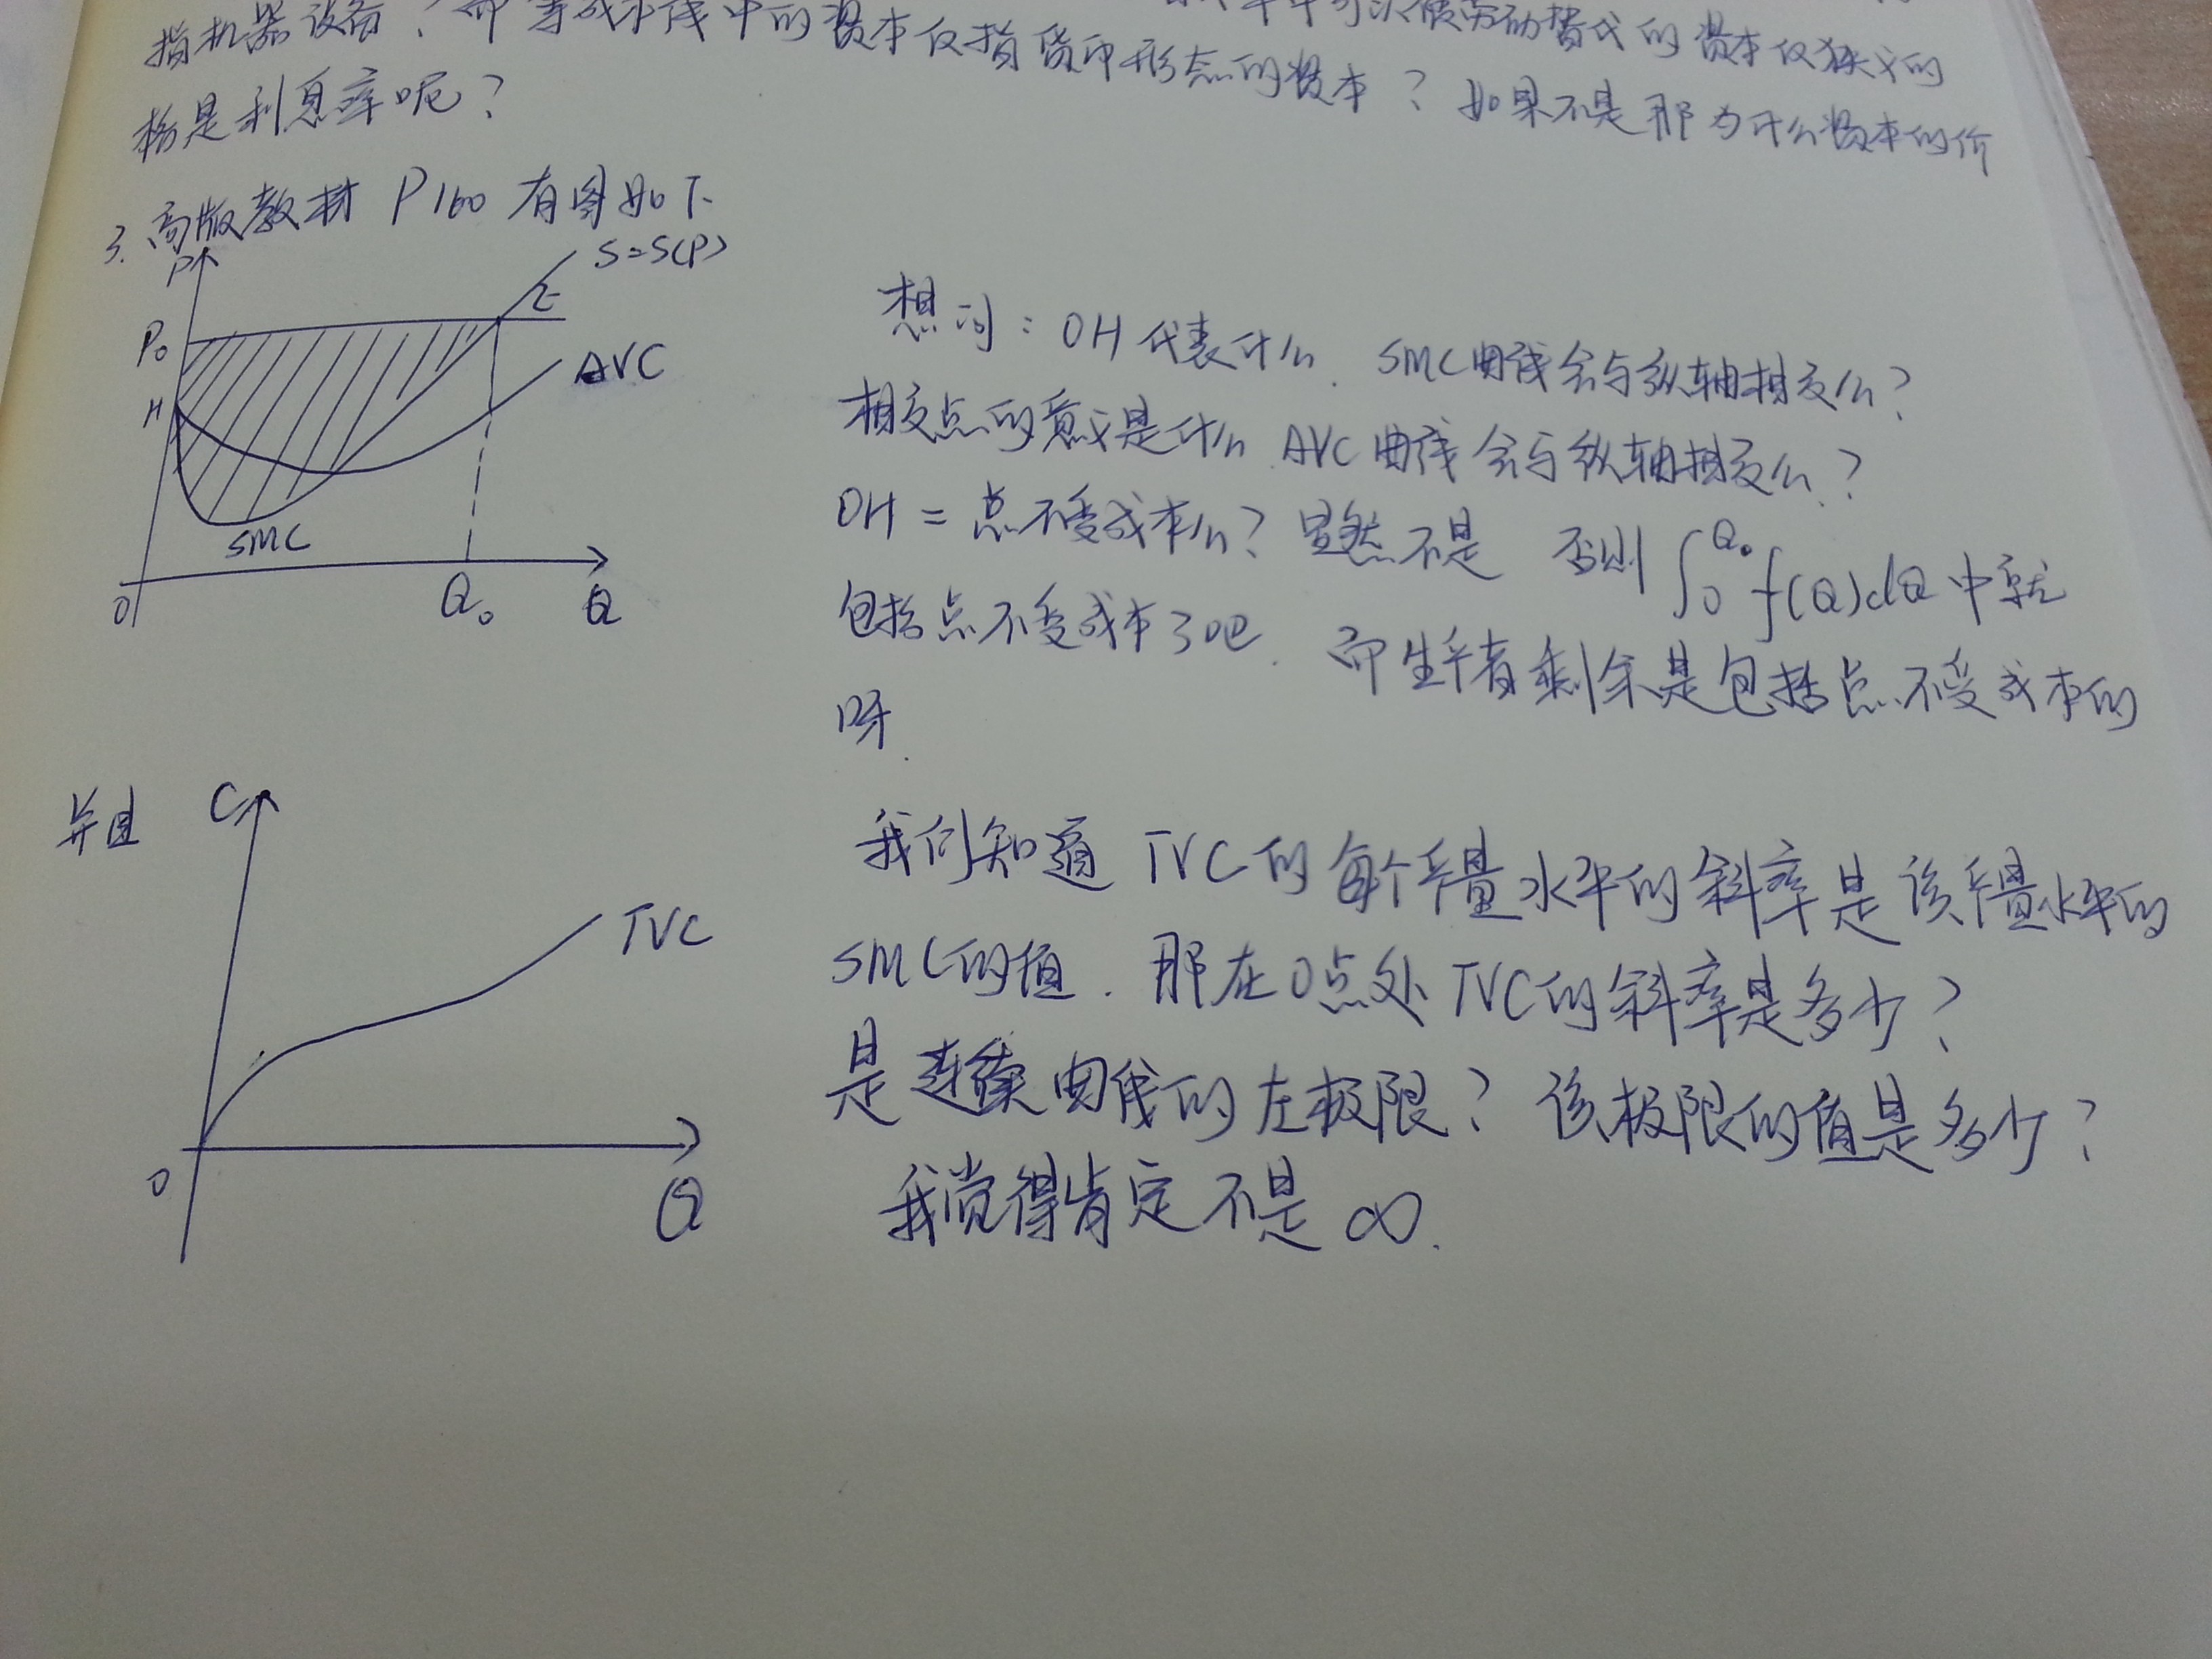 指机器设备？而等成本线中的资本仅指货币形态的资本？如果不是那为什么资本的价
可以被劳动替代的资本仅狭义的
格是利息率呢？
3. 高版教材 P160 有图如下
P
S=S(P)
E
P₀
AVC
H
SMC
O
Q₀
Q
想问：OH代表什么. SMC曲线会与纵轴相交么？
相交点的意义是什么. AVC曲线会与纵轴相交么？
OH = 总不变成本么？显然不是 否则 ∫₀^Q₀ f(Q)dQ 中就
包括总不变成本了吧. 而生产者剩余是包括总不变成本的
呀.
并且
C
TVC
O
Q
我们知道 TVC的每个产量水平的斜率是该产量水平的
SMC的值. 那在0点处TVC的斜率是多少？
是连续曲线的左极限？该极限的值是多少？
我觉得肯定不是∞.